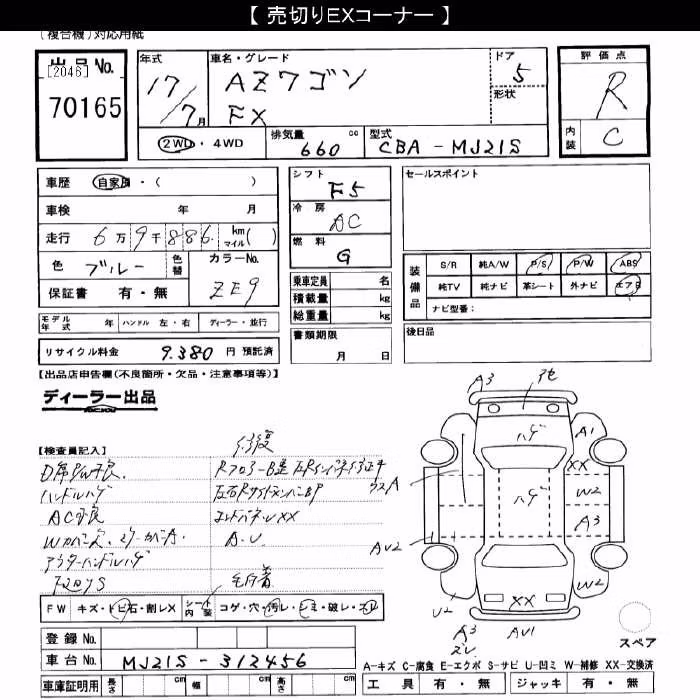 【 売切りEXコーナー 】
(複合機)対応用紙
出品No.
[2046]
70165
年式
17/7月
車名・グレード
AZワゴン
FX
ドア
5
形状
評価点
R
内装
C
2WD・4WD
排気量 cc
660
型式
CBA-MJ21S
車歴 自家用・( )
車検 年 月
走行 6万9千886 km マイル( )
色 ブルー 色替
カラーNo.
ZE9
保証書 有・無
シフト
F5
冷房
AC
燃料
G
乗車定員 名
積載量 kg
総重量 kg
セールスポイント
装備品
S/R 純A/W P/S P/W ABS
純TV 純ナビ 革シート 外ナビ エアB
ナビ型番:
モデル年式 年 ハンドル 左・右 ディーラー・並行
書類期限
月 日
後日品
リサイクル料金 9.380 円 預託済
【出品店申告欄(不良箇所・欠品・注意事項等)】
ディーラー出品
【検査員記入】
修復
D席P/W不良
ハンドルハゲ
左右Rサイドメンバー
AC不良
エンドパネルXX
A.U
アウターハンドルハゲ
FW キズ・トビ石・割レX シート内装 コゲ・穴・汚レ・シミ・破レ・スレ
登録No.
車台No. MJ21S-312456
車庫証明用 長さ cm 幅 cm 高さ cm
A3
ハゲ
A1
XX
W2
ハゲ
A3
AU2
W2
U2
XX
A3
2U
AU1
スペア
A-キズ C-腐食 E-エクボ S-サビ U-凹ミ W-補修 XX-交換済
工具 有・無 ジャッキ 有・無